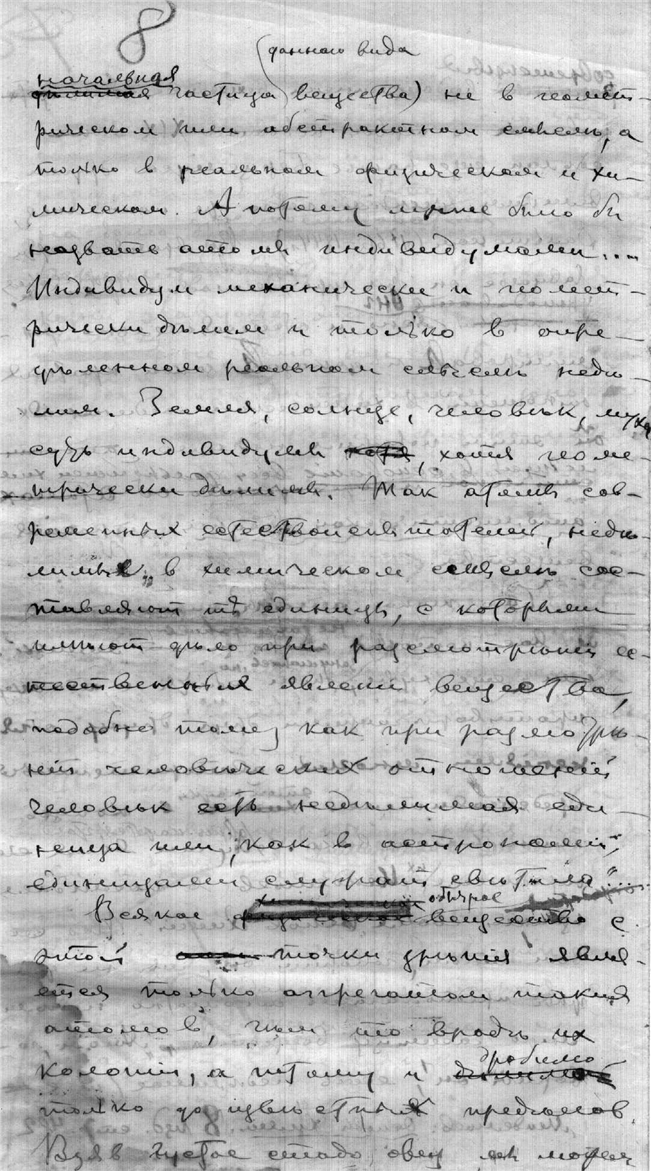 8
данного вида
начальная
частица вещества) не в геомет-
рическом или абстрактном смысле, а
только в реальном физическом и хи-
мическом. А потому лучше было бы
назвать атомы индивидуумами...
Индивидуум механически и геомет-
рически дѣлим и только в опре-
дѣленном реальном смыслѣ недѣ-
лим. Земля, солнце, человѣк, муха
суть индивидуумы, хотя геоме-
трически дѣлимы. Так атомы сов-
ременных естествоиспытателей, недѣ-
лимые в химическом смыслѣ сос-
тавляют тѣ единицы, с которыми
имѣют дѣло при разсмотрѣнии ес-
тественных явлений вещества,
подобно тому как при разсмотрѣ-
нии человѣческих отношений
человѣк есть недѣлимая еди-
ница или, как в астрономии,
единицами служат свѣтила".
Всякое обычное вещество с
этой точки зрѣния явля-
ется только аггрегатом таких
атомов, чѣм то вродѣ их
колонии, а потому и дробимо
только до извѣстных предѣлов.
Взяв густое стадо овец мы можем